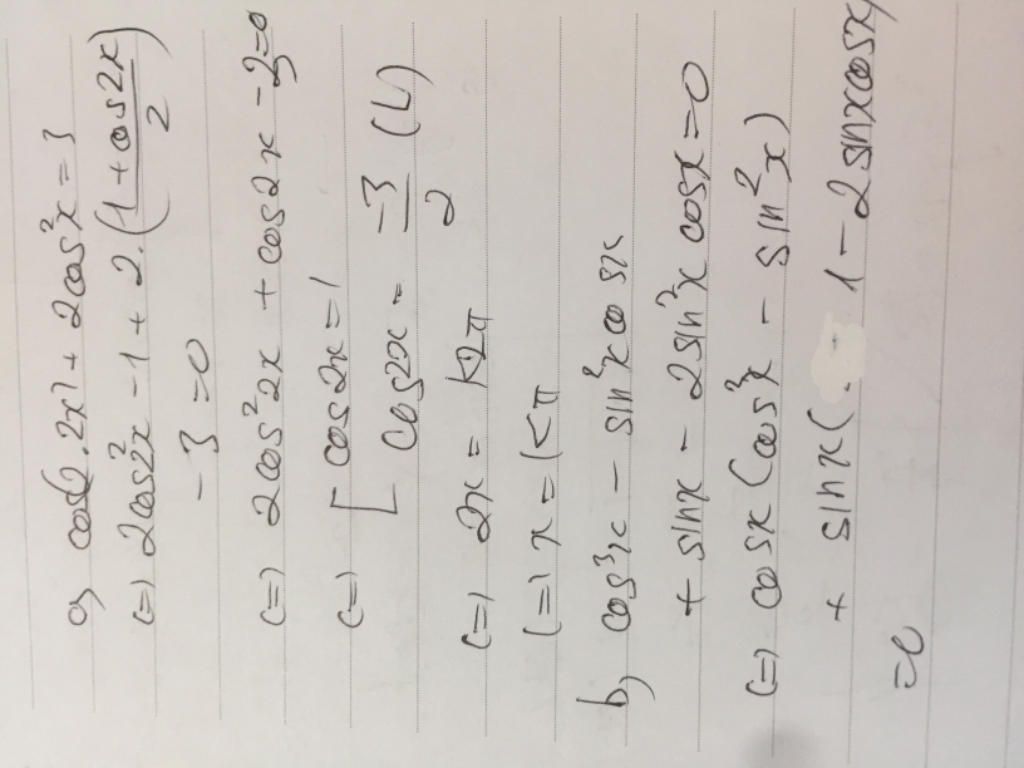 a, cos(2.2x) + 2cos²x = 3
(=) 2cos²2x - 1 + 2.(1 + cos2x / 2)
- 3 = 0
(=) 2cos²2x + cos2x - 3 = 0
(=) [ cos2x = 1
[ cos2x = -3/2 (L)
(=) 2x = k2π
(=) x = kπ
b, cos³x - sin²x cosx
+ sinx - 2sin²x cosx = 0
(=) cosx(cos²x - sin²x)
+ sinx( 1 - 2sinxcosx)
= 0